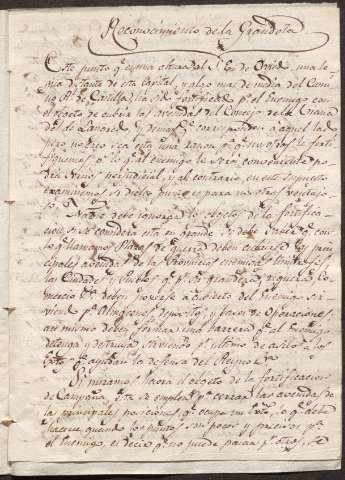 Reconocimiento de la Grandota
Este punto que es una altura al S. E. de Oviedo, una le
gua distante de esta Capital, y algo mas de media del Cami
no Rl. de Castilla, ha sido fortificado pr. el Enemigo con
el objeto de cubrir las avenidas del Concejo de la
del de Laviana y demas qe. corresponden a aquel lado
pero no hera sea esta una razon pa. qe. nosotros le forti
fiquemos pr. lo qe. al enemigo le sera conveniente po
dria sernos perjudicial, y al contrario en este supuesto
examinemos si dicho punto es para nosotros ventajo
so.
Nadie debe ignorar los objetos de la fortifica
cion, si se considera esta en grande se debe saber qe. con
lo qe. llamamos Plazas de guerra deben cubrirse las prin
cipales avenidas de las Provincias enemigas limitrofes,
las Ciudades y Pueblos qe. pr. su grandeza, riqueza, y co
mercio &a. deben ponerse a cubierto del Enemigo sir
viendo pa. Almacenes, depositos, y favor de operaciones:
asi mismo deben formar una barrera qe. al Enemigo
detenga y destruya sirviendo pr. ultimo de asilo a los
qe. ayudan la defensa del Reyno &a.
Si miramos hacia el objeto de la fortificacion
de Campaña, esta se emplea pa. cerrar las avenidas de
las principales posiciones qe. ocupa un Exto., lo qe. debe
hacerse, quando los puntos son pocos y precisos pa.
el Enemigo, es decir qe. no puede pasar pr. otros, se